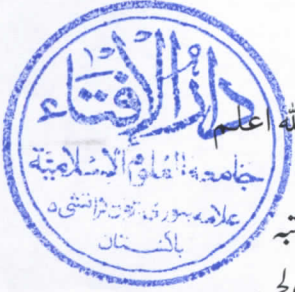 دار الإفتاء
جامعة العلوم الإسلامية
علامہ بنوری ٹاؤن کراچی ۵
پاکستان
اللہ اعلم
کتبہ